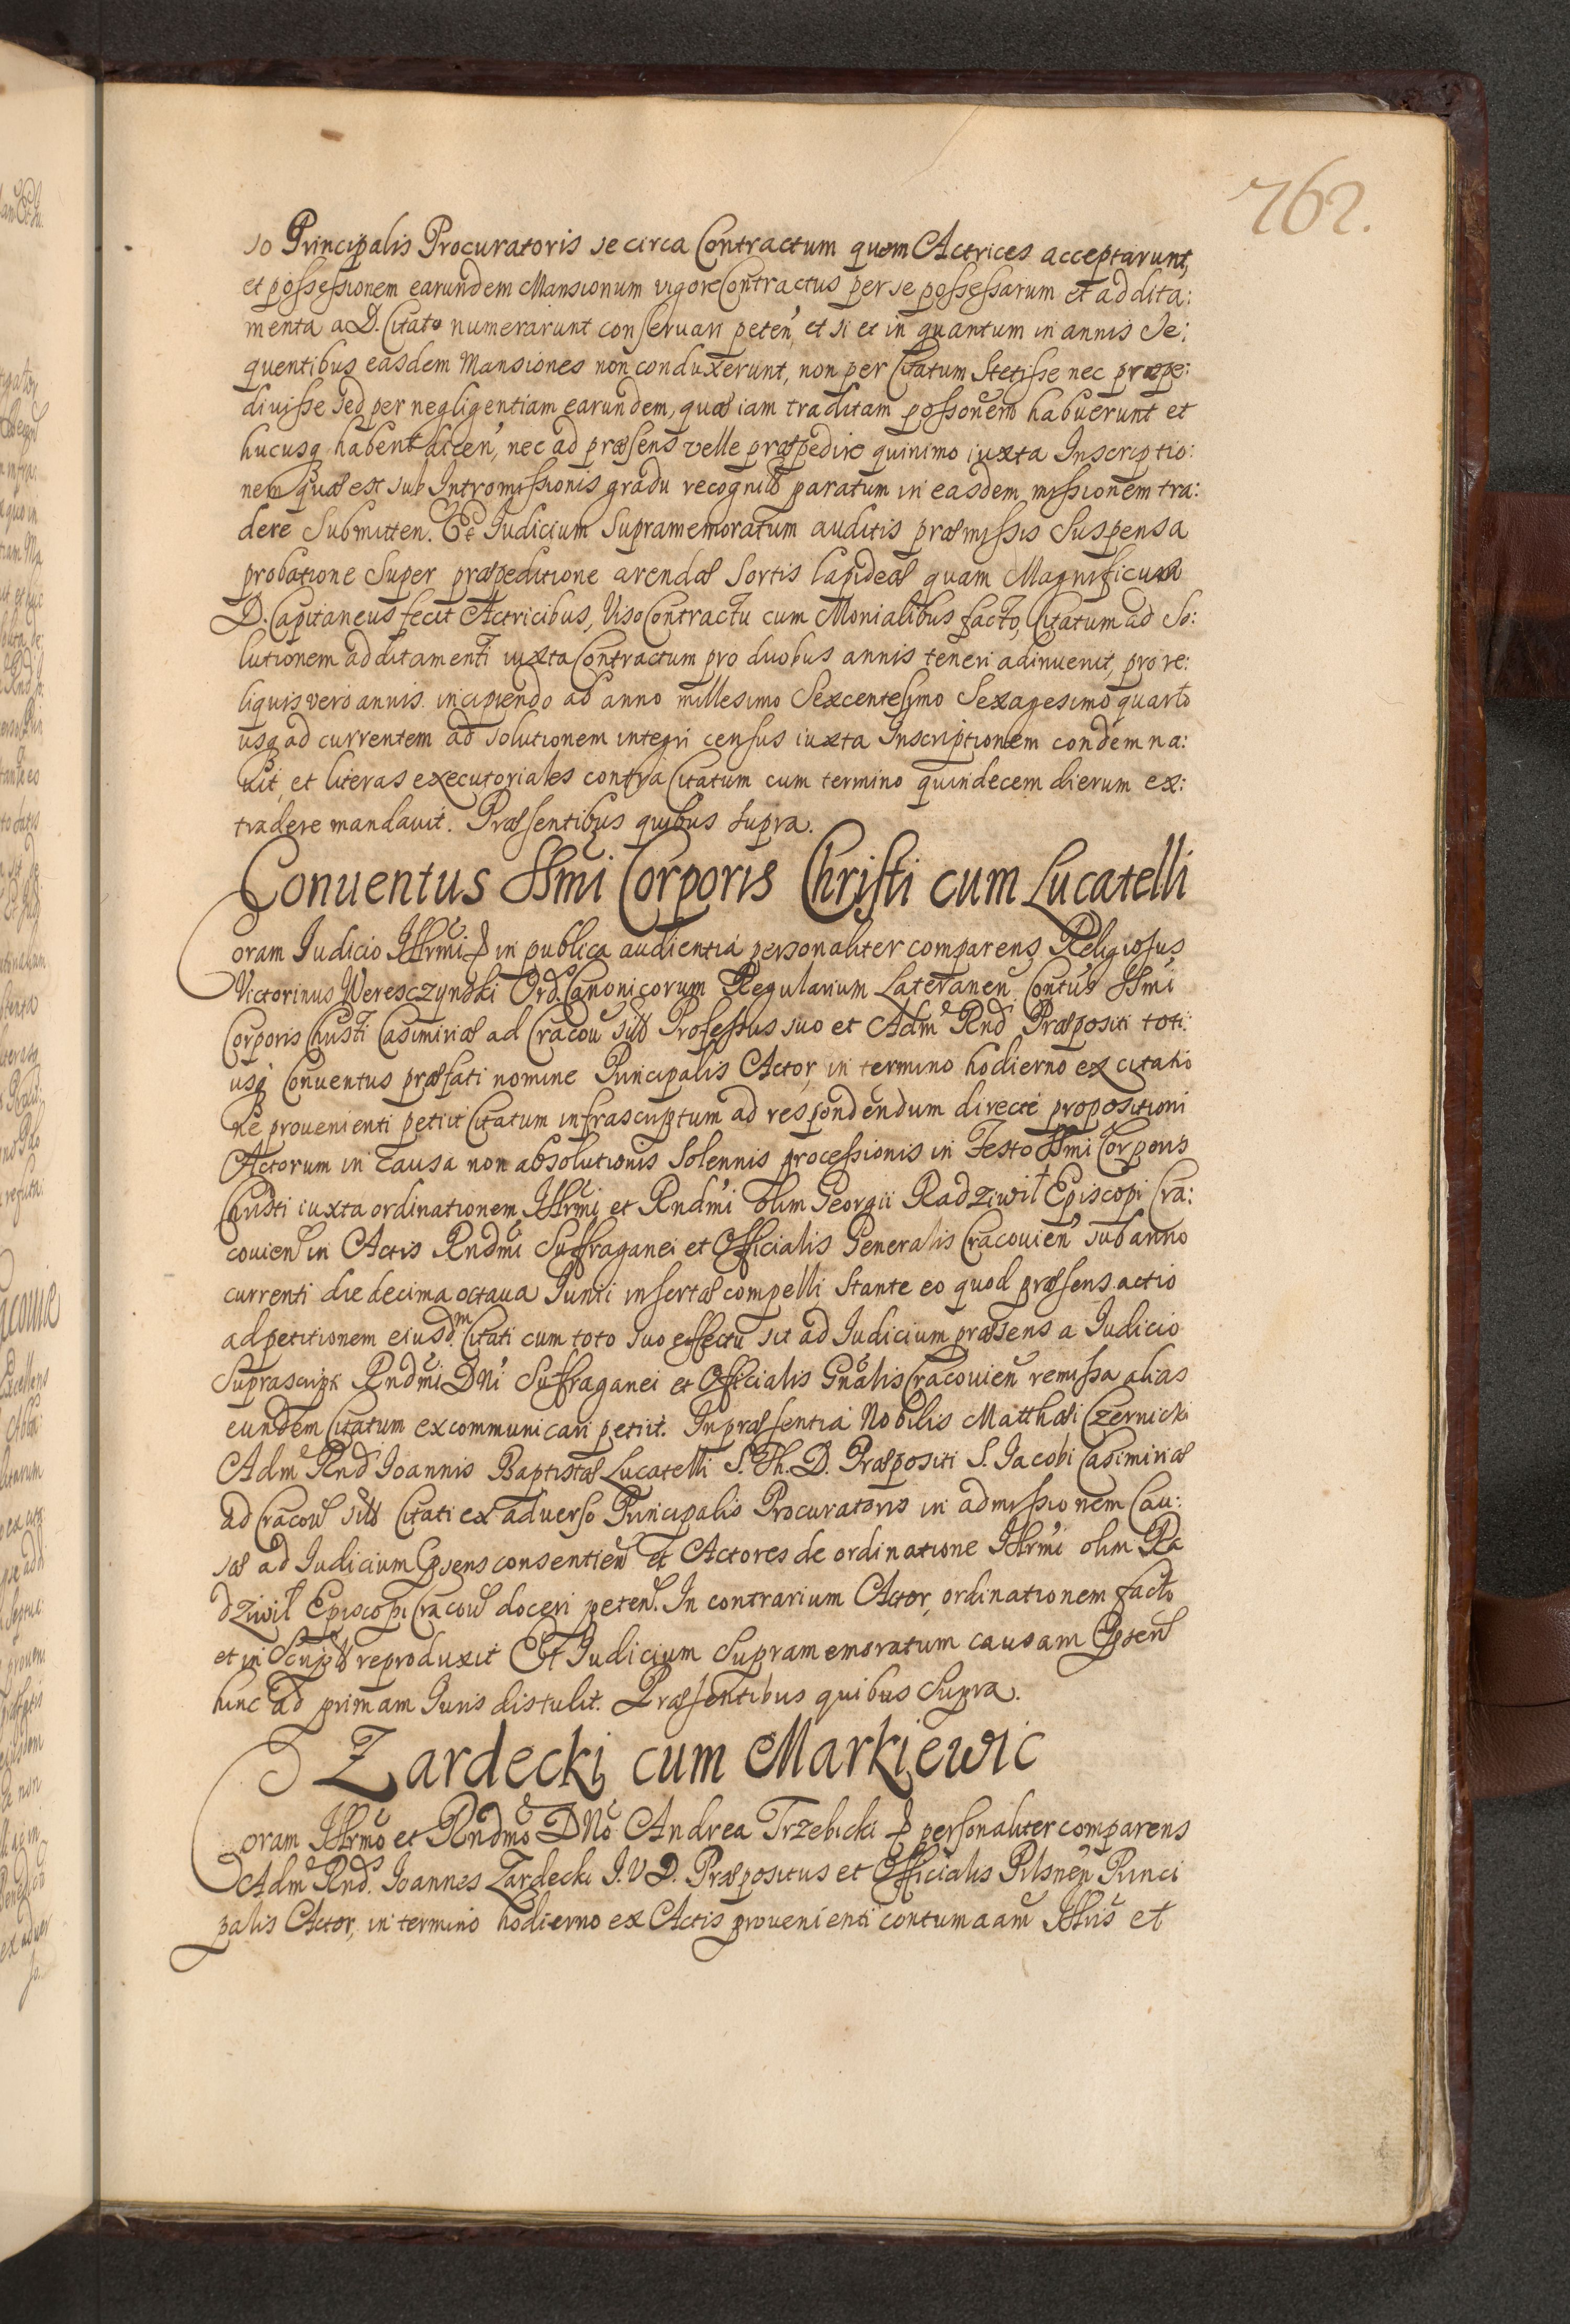 762.
so Principalis Procuratoris se circa Contractum quem Actrices acceptarunt,
et possessionem earundem Mansionum vigore Contractus per se possessarum et addita:
menta a D. Citato numerarunt conseruari peten̄, et si et in quantum in annis Se:
quentibus easdem Mansiones non conduxerunt, non per Citatum Stetisse nec præpe:
diuisse sed per negligentiam earundem, quæ iam traditam possonem̄ habuerunt et
hucusq habent allen̄, nec ad præsens velle præpedire quinimo iuxta Inscriptio:
nem quæ est sub Intromissionis gradu paratum in easdem missionem tra:
dere Submitten. Et Iudicium Supramemoratum auditis præmissis Suspensa
probatione Super præpeditione arendæ Sortis lapideæ quam Magnificus
D. Capitaneus fecit Actricibus, Viso Contractu cum Monialibus facto, Citatum ad So:
lutionem additamenti iuxta Contractum pro duobus annis teneri adinuenit, pro re:
liquis vero annis incipiendo ab anno millesimo Sexcentesimo Sexagesimo quarto
usq ad currentem ad Solutionem integri census iuxta Inscriptionem condemna:
uit, et literas executoriales contra Citatum cum termino quindecem dierum ex:
tradere mandauit. Præsentibus quibus supra.
Conuentus SSmi Corporis Christi cum Lucatelli
Coram Iudicio Illrmi in publica audientia personaliter comparens Religiosus
Victorinus Weresczynski Ord. Canonicorum Regularium Lateranen̄ Contus̄ SSmi
Corporis Christi Casimiriæ ad Cracou Professus suo et Adm Rnd Præpositi toti:
usq Conuentus præfati nomine Principalis Actor, in termino hodierno ex citatio
ne prouenienti petiit Citatum infrascriptum ad respondendum directe propositioni
Actorum in Causa non absolutionis Solennis processionis in Festo SSmi Corporis
Christi iuxta ordinationem Illrmi et Rndmi olim Georgii Radziwil Episcopi Cra:
couien̄ in Actis Rndmi Suffraganei et Officialis Generalis Cracouien̄ sub anno
currenti die decima octaua Iunii insertæ compelli Stante eo quod præsens actio
ad petitionem eiusdm Citati cum toto suo effectu sit ad Iudicium præsens a Iudicio
Suprascript Rndmi DNi Suffraganei et Officialis Gnalis Cracouien̄ remissa alias
eundem Citatum excommunicari petiit. In præsentia Nobilis Matthæi Czernicki
Adm Rnd Ioannis Baptistæ Lucatelli S. Th. D. Præpositi S. Iacobi Casimiriæ
ad Cracou Citati ex aduerso Principalis Procuratoris in admissionem Cau:
sæ ad Iudicium consentien̄ et Actores de ordinatione Illrmi olim Ra
dziwil Episcopi Cracou doceri peten̄. In contrarium Actor, ordinationem facto
et in reproduxit Et Iudicium Supramemoratum causam
hinc ad primam Iuris distulit. Præsentibus quibus Supra.
Zardecki cum Markiewic
Coram Illrmo et Rndmo DNo Andrea Trzebicki personaliter comparens
Adm Rnds. Ioannes Zardecki I. V D. Præpositus et Officialis Pilsnen̄ Princi
palis Actor, in termino hodierno ex Actis prouenienti et